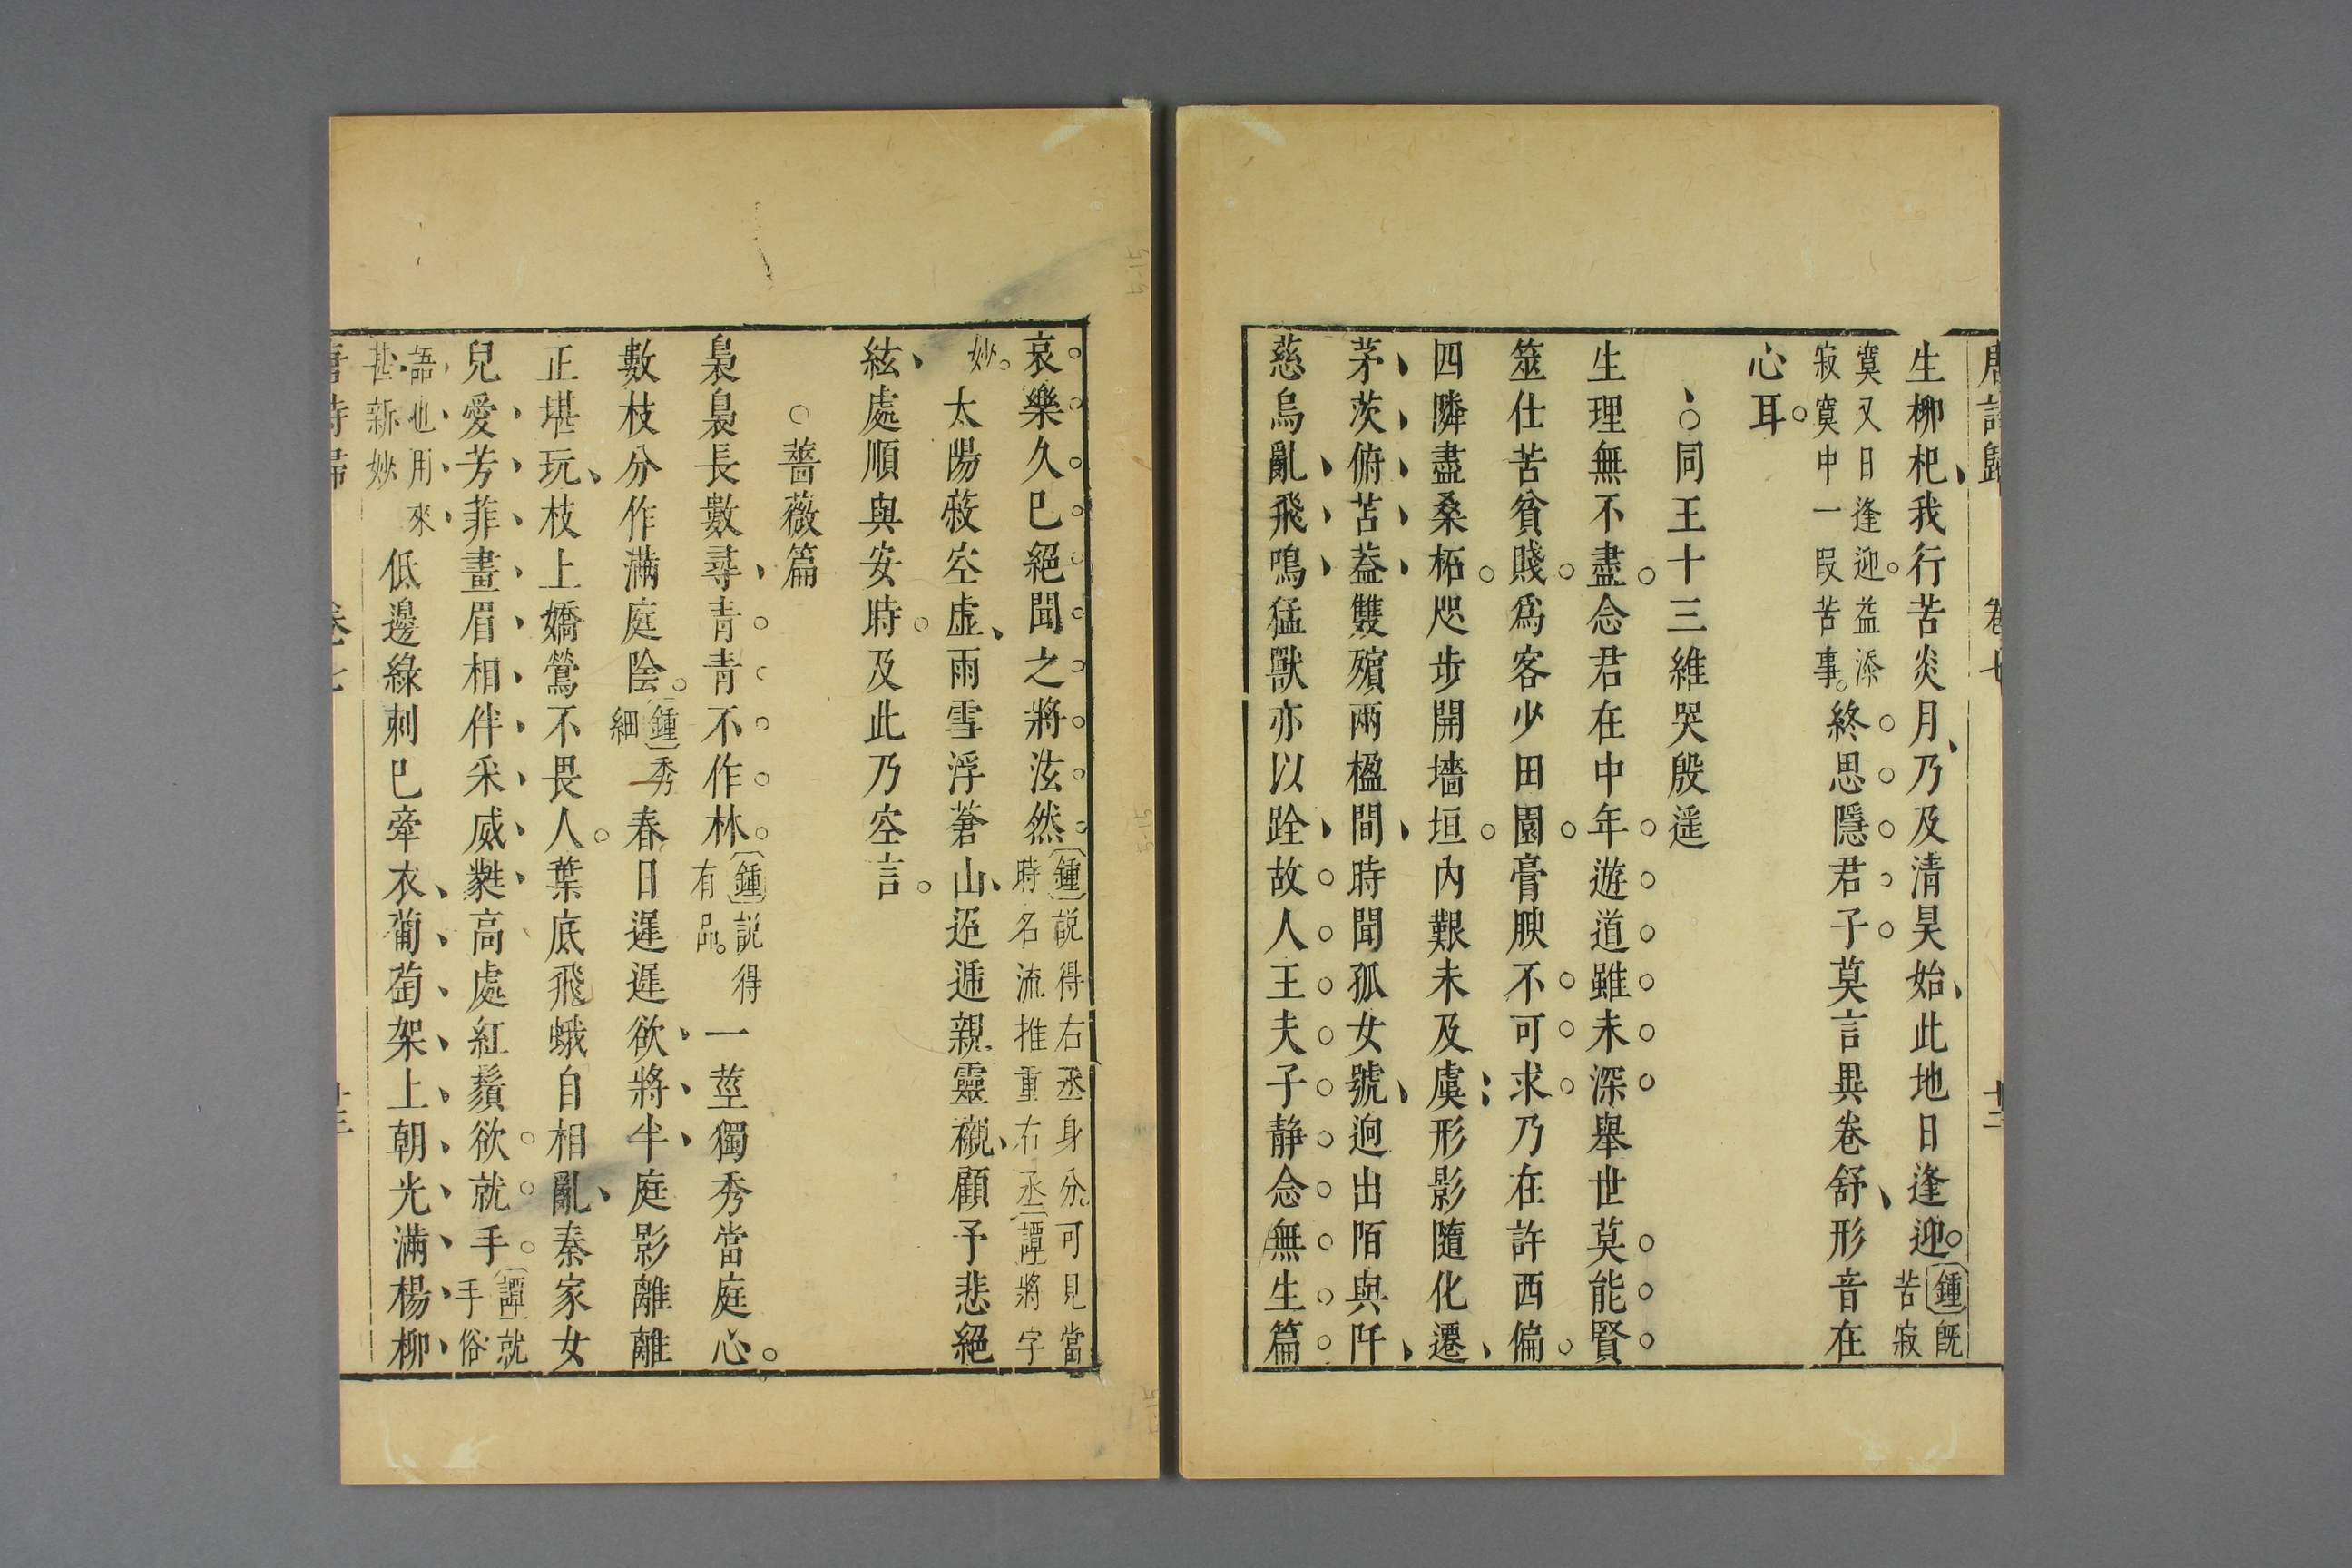 唐詩歸 卷七 十二
生柳杞我行苦炎月乃及清昊始此地日逢迎鍾既苦寂
寞又日逢迎益添寂寞中一段苦事終思隱君子莫言異卷舒形音在
心耳
同王十三維哭殷遥
生理無不盡念君在中年遊道雖未深舉世莫能賢
筮仕苦貧賤爲客少田園膏腴不可求乃在許西偏
四隣盡桑柘咫步開墻垣内艱未及虞形影隨化遷
茅茨俯苫葢雙殯兩楹間時聞孤女號迥出陌與阡
慈烏亂飛鳴猛獸亦以跧故人王夫子静念無生篇
哀樂久已絕聞之將泫然鍾説得右丞身分可見當時名流推重右丞譚將字
妙太陽蔽空虛雨雪浮蒼山迢遞親靈櫬顧予悲絕
絃處順與安時及此乃空言
薔薇篇
裊裊長數尋青青不作林鍾説得有品一莖獨秀當庭心
數枝分作滿庭陰鍾秀細春日遲遲欲將半庭影離離
正堪玩枝上嬌鶯不畏人葉底飛蛾自相亂秦家女
兒愛芳菲畫眉相伴采葳蕤高處紅鬚欲就手譚就手俗
語也用來甚新妙低邊綠刺已牽衣葡萄架上朝光滿楊柳
唐詩歸 卷七 十三